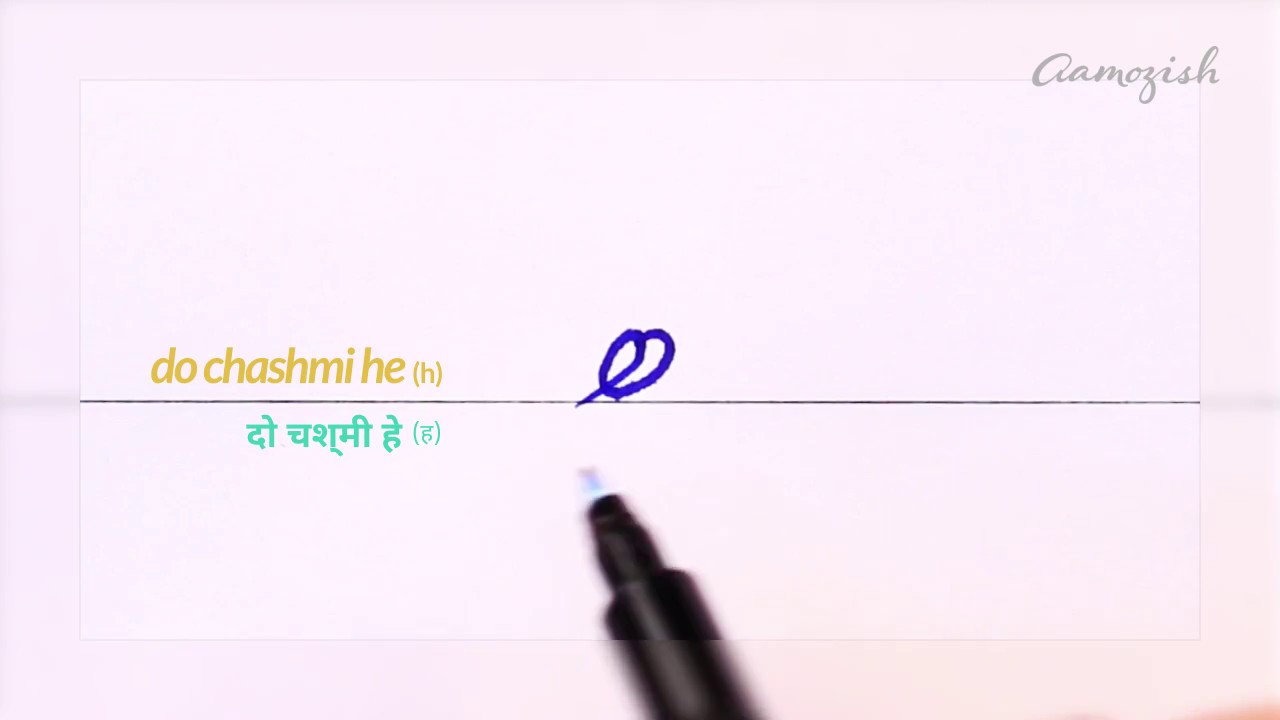 Aamozish
ھ
do chashmi he (h)
दो चश्मी हे (ह)